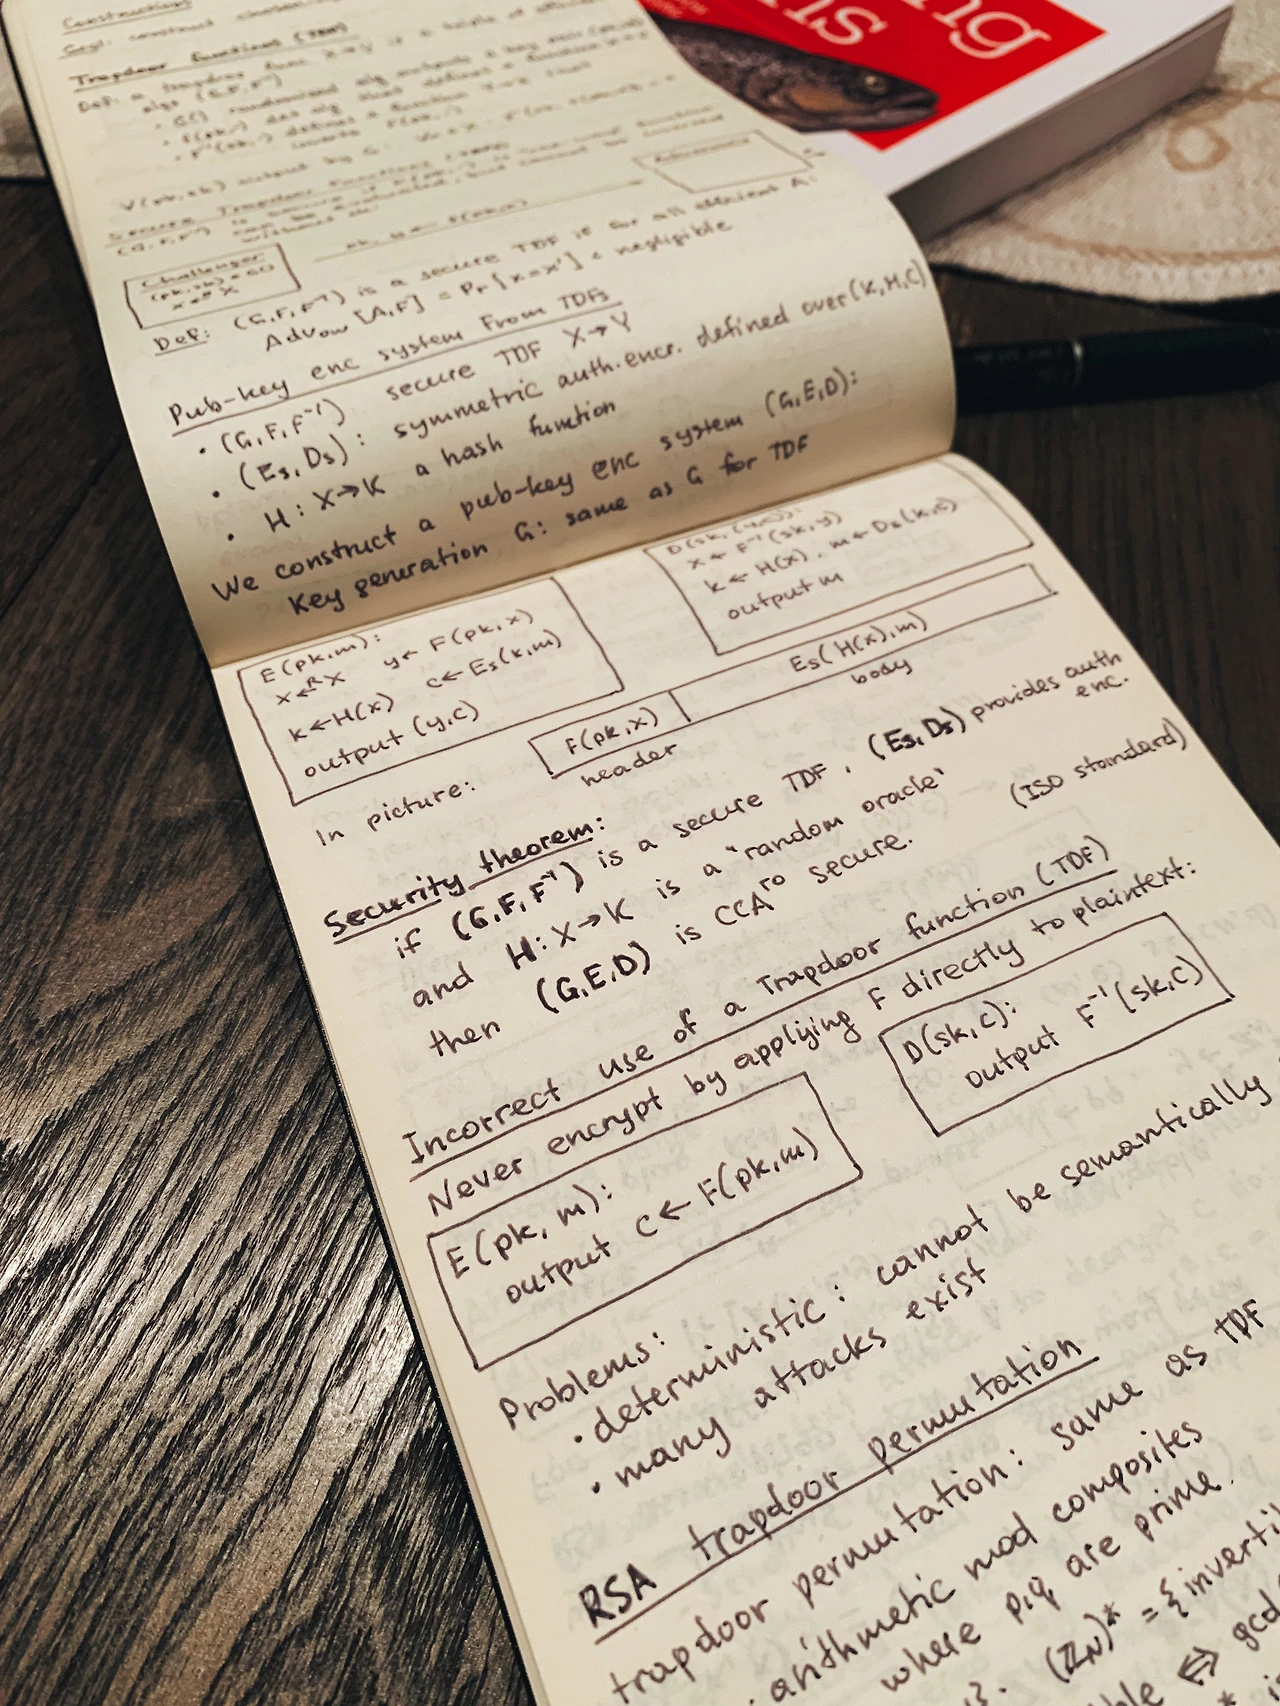 Constructions
Goal: construct
Trapdoor functions (TDF)
Def: a trapdoor func X→Y is a triple of efficient
algs (G,F,F⁻¹)
• G() randomized alg outputs a key pair (pk,sk)
• F(pk,·) det alg that defines a function X→Y
• F⁻¹(sk,·) defines a function Y→X that
inverts F(pk,·)
∀(pk,sk) output by G:
Secure Trapdoor Functions (TDFs)
(G,F,F⁻¹) is secure if F(pk,·) is "one-way" function
can be evaluated, but cannot be inverted
without sk:
Adversary
Challenger
(pk,sk) ← G()
x ←ᴿ X
Def: (G,F,F⁻¹) is a secure TDF if for all efficient A:
Adv_OW [A,F] = Pr [x=x'] < negligible
Pub-key enc system from TDFs
• (G,F,F⁻¹) secure TDF X→Y
• (Es,Ds): symmetric auth.encr. defined over (K,M,C)
• H: X→K a hash function
We construct a pub-key enc system (G,E,D):
Key generation G: same as G for TDF
E(pk,m):
x ←ᴿ X y← F(pk,x)
k←H(x) c←Es(k,m)
output (y,c)
D(sk,(y,c)):
x ← F⁻¹(sk,y)
k ← H(x), m ← Ds(k,c)
output m
In picture:
F(pk,x) Es(H(x),m)
header body
Security theorem:
if (G,F,F⁻¹) is a secure TDF, (Es,Ds) provides auth
enc.
and H:X→K is a "random oracle"
then (G,E,D) is CCAʳᵒ secure. (ISO standard)
Incorrect use of a Trapdoor function (TDF)
Never encrypt by applying F directly to plaintext:
E(pk, m):
output c← F(pk,m)
D(sk,c):
output F⁻¹(sk,c)
Problems:
• deterministic: cannot be semantically
• many attacks exist
RSA trapdoor permutation
trapdoor permutation: same as TDF
• arithmetic mod composites
where p,q are prime.
(ℤ_N)* = {
⇔ gcd